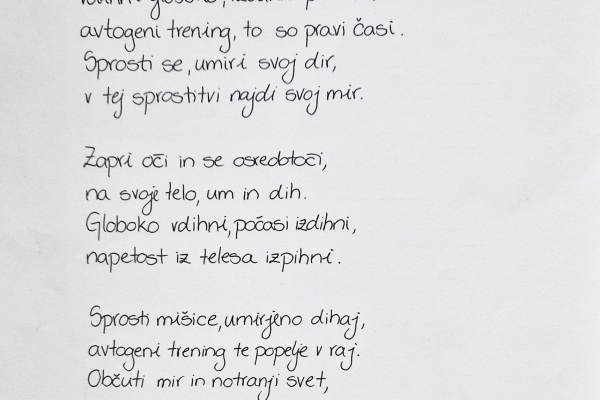 avtogeni trening, to so pravi časi.
Sprosti se, umiri svoj dir,
v tej sprostitvi najdi svoj mir.
Zapri oči in se osredotoči,
na svoje telo, um in dih.
Globoko vdihni, počasi izdihni,
napetost iz telesa izpihni.
Sprosti mišice, umirjeno dihaj,
avtogeni trening te popelje v raj.
Občuti mir in notranji svet,